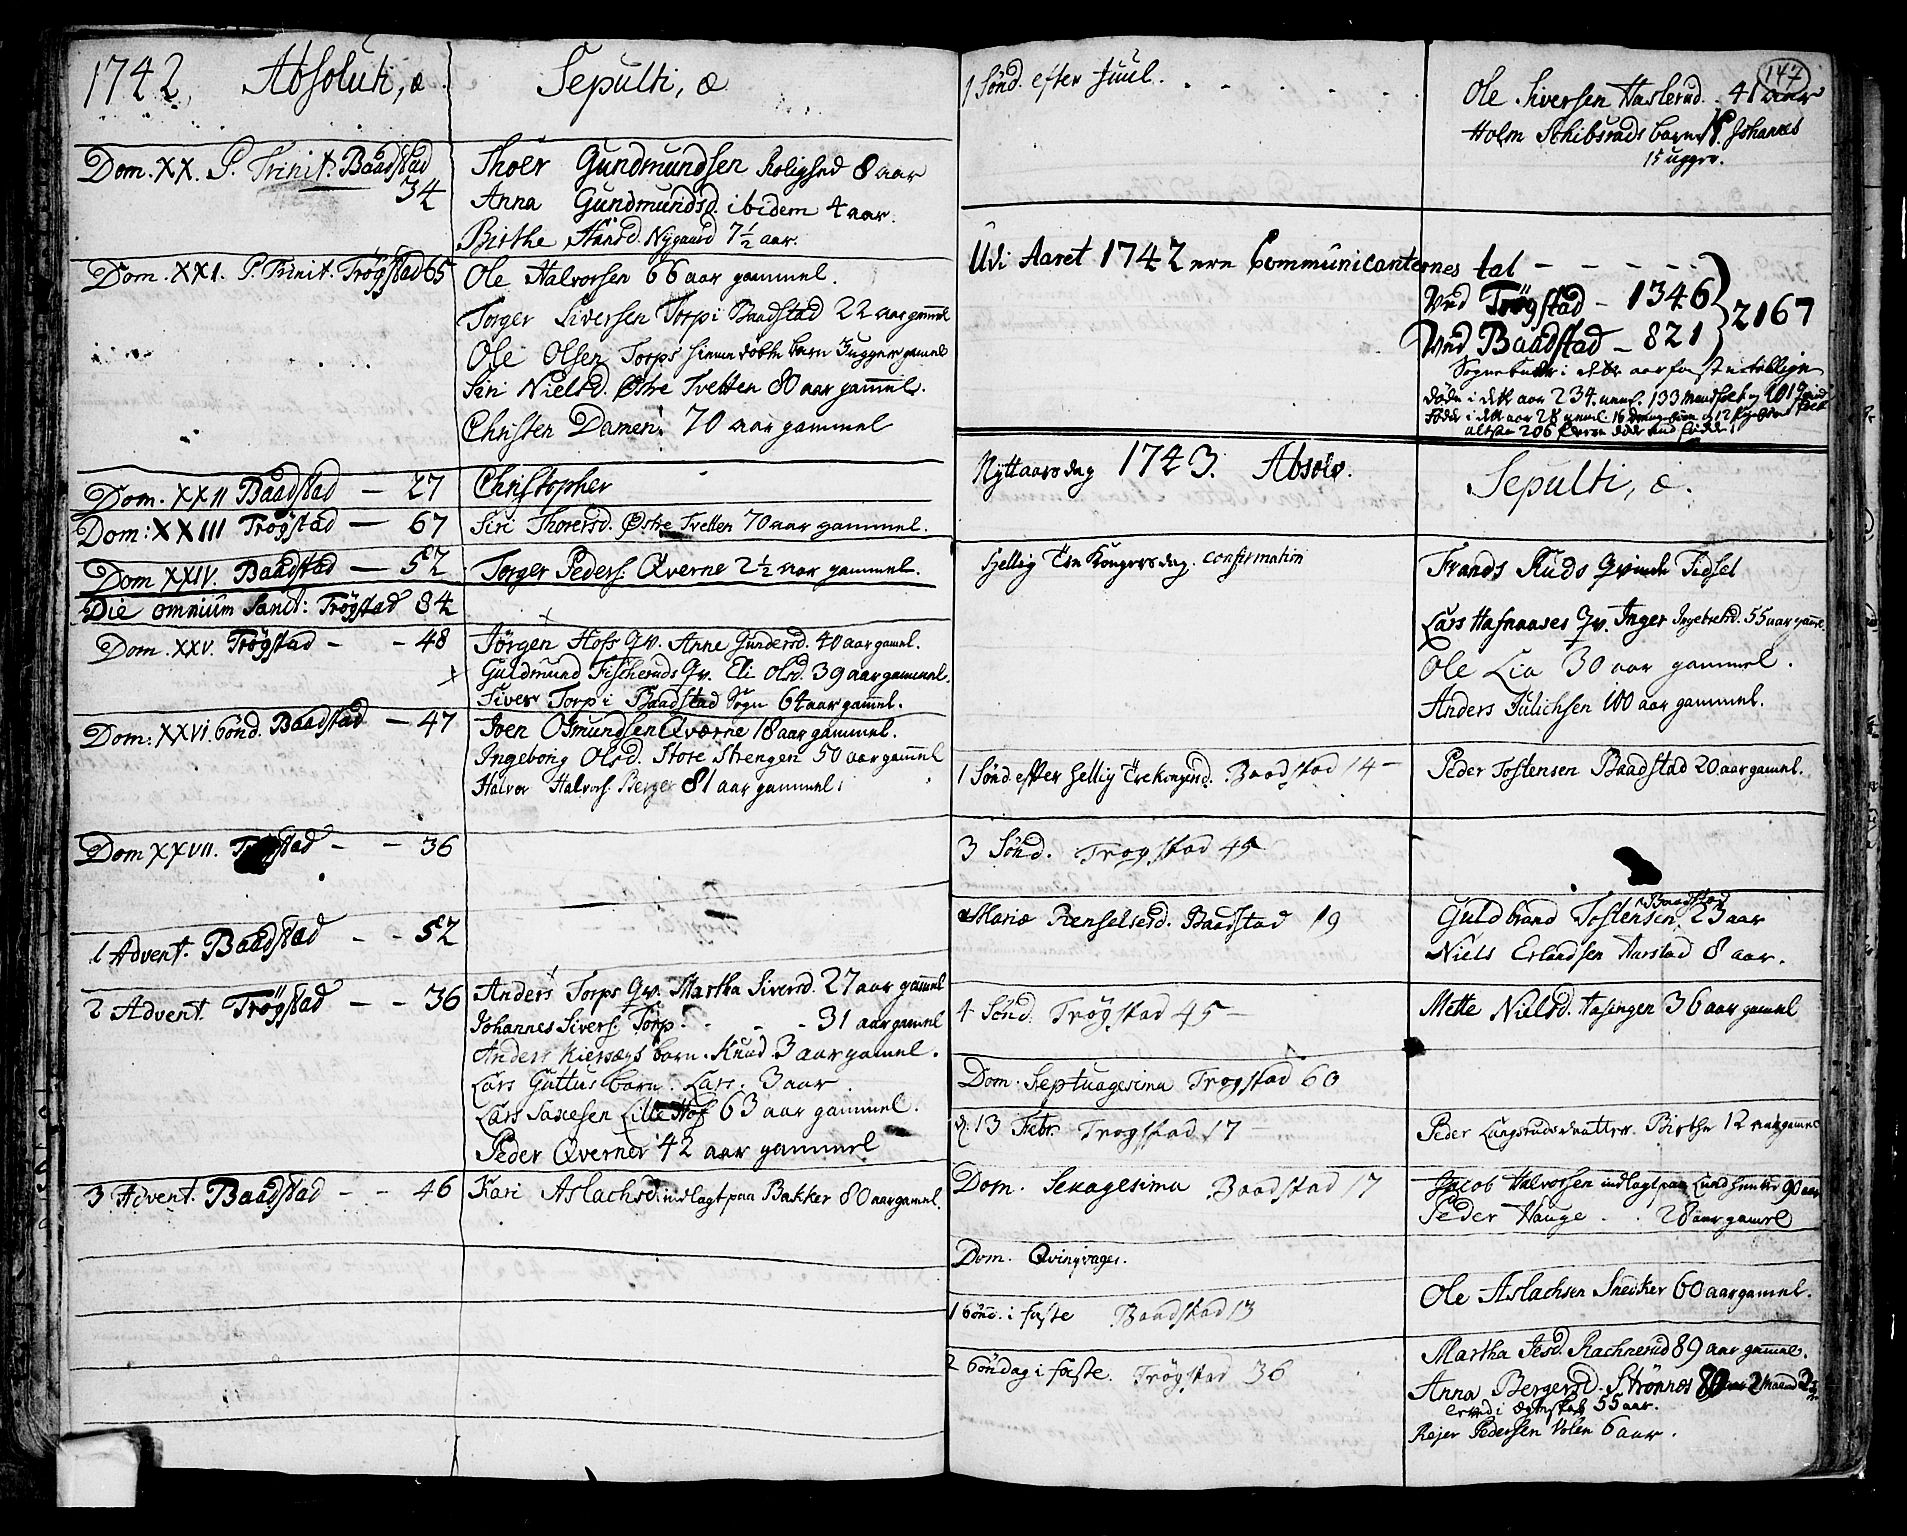 1742. Absoluti, æ
Sepulti, æ
Dom. XX. P. Trinit. Baadstad
34
Thoer Gundmundsen holighed 8 aar
Anna Gundmundsd. ibidem 4 aar.
Birthe Hansd. Nygaard 7½ aar.
Dom. XXI. P. Trinit. Trögstad 65
Ole Halvorsen 66 aar gammel.
Torger Siversen Torp i Baadstad 22 aar gammel
Ole Olsen Torps hiemmedøbte barn 3 ugger gamel
Siri Nielsd. Østre Tvetten 80 aar gammel.
Christen Damen: 70 aar gammel
Dom. XXII Baadstad — 27
Christopher
Dom: XXIII Trögstad — 67
Siri Thorersd. Østre Tvetten 70 aar gammel.
Dom XXIV. Baadstad — 52
Torger Peders. Qverne 2½ aar gammel.
Die omnium Sanct: Trögstad 84
Dom. XXV. Trögstad - - 48
Jörgen Hofs Qv. Anne Gundersd. 40 aar gamel.
Guldmund Fischeruds Qv. Eli Olsd. 39 aar gammel.
Siver Torp i Baadstad Sogn 64 aar gamel.
Dom: XXVI Sönd. Baadstad — 47
Joen Osmundsen Qværne 18 aar gammel.
Ingeborig Olsd. Store Strengen 50 aar gammel
Halvor Halvors. Berger 81 aar gammel.
Dom XXVII. Trögstad - - 36
1 Advent. Baadstad - - 52
2 Advent Trögstad - - 36
Anders Torps Qv. Martha Siversd. 27 aar gammel
Johannes Sivers. Torp. - - - 31 aar gamel
Anders Kiersægs barn. Knud. 3 aar gamel.
Lars Guttus barn. Lars. 3 aar.
Lars Saxesen Lille Hof 63 aar gammel.
Peder Qverner 42 aar gammel
3 Advent. Baadstad - - 46
Kari Aslachsd. indlagt paa Bakker 80 aar gamel.
147
1 Sönd. efter Juul. . . . . .
Ole Siversen Haslerud. 41 aar
Holm Schibsrads barn N. Johannes
15 ugger.
Udi Aaret 1742 ere Communicanternes tal - - - - -
Ved Trögstad - 1346
Ved Baadstad - 821
} 2167
döde i dette aar 234. neml. 133 Mandfolk og 101 Qvind
föder i dette aar 28 neml. 16 drengebørn og 12 Pigebørn folk
altsaa 206 fleere døde end födde.
Nyttaarsdag 1743. Absolv.
Sepulti, æ.
Hellig Tre Kongersdag. confirmation
Frands Ruds Qvinde Sidsel
Lars Hafnaases Qv. Inger Ingebretsd. 55 aar gamel.
Ole Lia 30 aar gammel.
Anders Julichsen 100 aar gammel.
1 Sönd efter Hellig Trekongersd. Baadstad 14 -
Peder Tostensen Baadstad 20 aar gamel.
3 Sönd. Trogstad 45
Mariæ Renselsesd. Baadstad 19
Guldbrand Tostensen Baadstad 23 aar
Niels Erlandsen Aarstad 8 aar.
4 Sönd. Trögstad 45 -
Mette Nielsd. Hasingen 36 aar gamel
Dom. Septuagesima Trogstad 60
d. 13 Febr. Trogstad 17 -
Peder Langsrudsdaatter Birthe 12 aar gammel
Dom. Sexagesima Baadstad 17
Jacob Halvorsen indlagt paa Lund hundr 90 aar
Peder Hauge . . 28 aar gamel
Dom. Qvinqvages.
Ole Aslachsen Snedker 60 aar gamel.
1 Sönd. i faste Baadstad 13
2 Söndag i faste. Trögstad 36
Martha Jesd. Rachnerud 89 aar gammel.
Anna Bergersd. Strönnes 80 aar 2 Maaned
levedi Ægteskab 55 aar.
Rejer Pedersen Volen 6 aar.